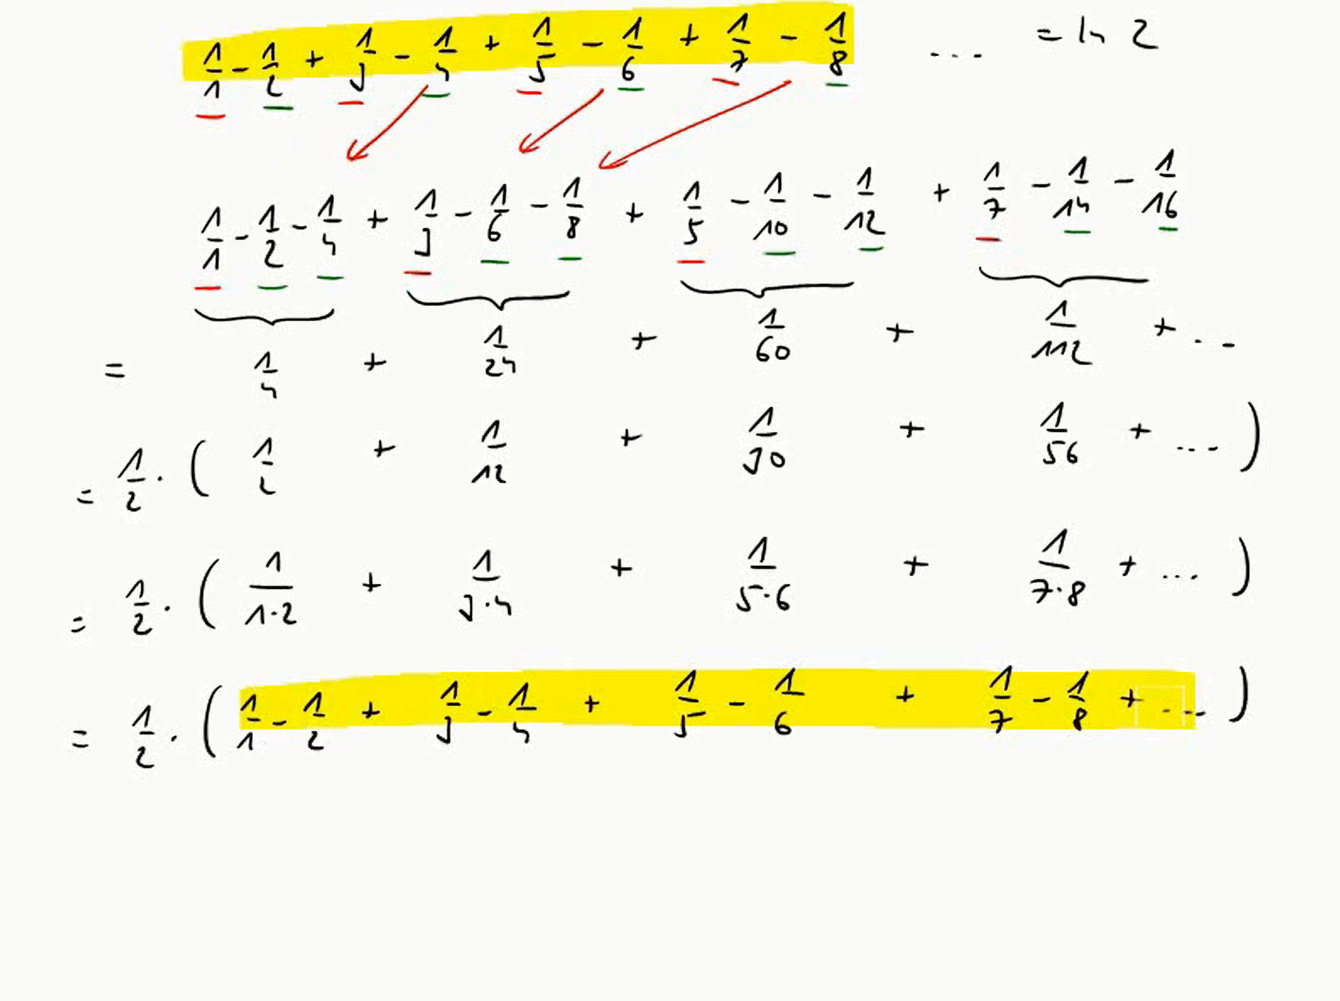 1/1 - 1/2 + 1/3 - 1/4 + 1/5 - 1/6 + 1/7 - 1/8 ... = ln 2
1/1 - 1/2 - 1/4 + 1/3 - 1/6 - 1/8 + 1/5 - 1/10 - 1/12 + 1/7 - 1/14 - 1/16
= 1/4 + 1/24 + 1/60 + 1/112 + ...
= 1/2 · ( 1/2 + 1/12 + 1/30 + 1/56 + ... )
= 1/2 · ( 1/1·2 + 1/3·4 + 1/5·6 + 1/7·8 + ... )
= 1/2 · ( 1/1 - 1/2 + 1/3 - 1/4 + 1/5 - 1/6 + 1/7 - 1/8 + ... )